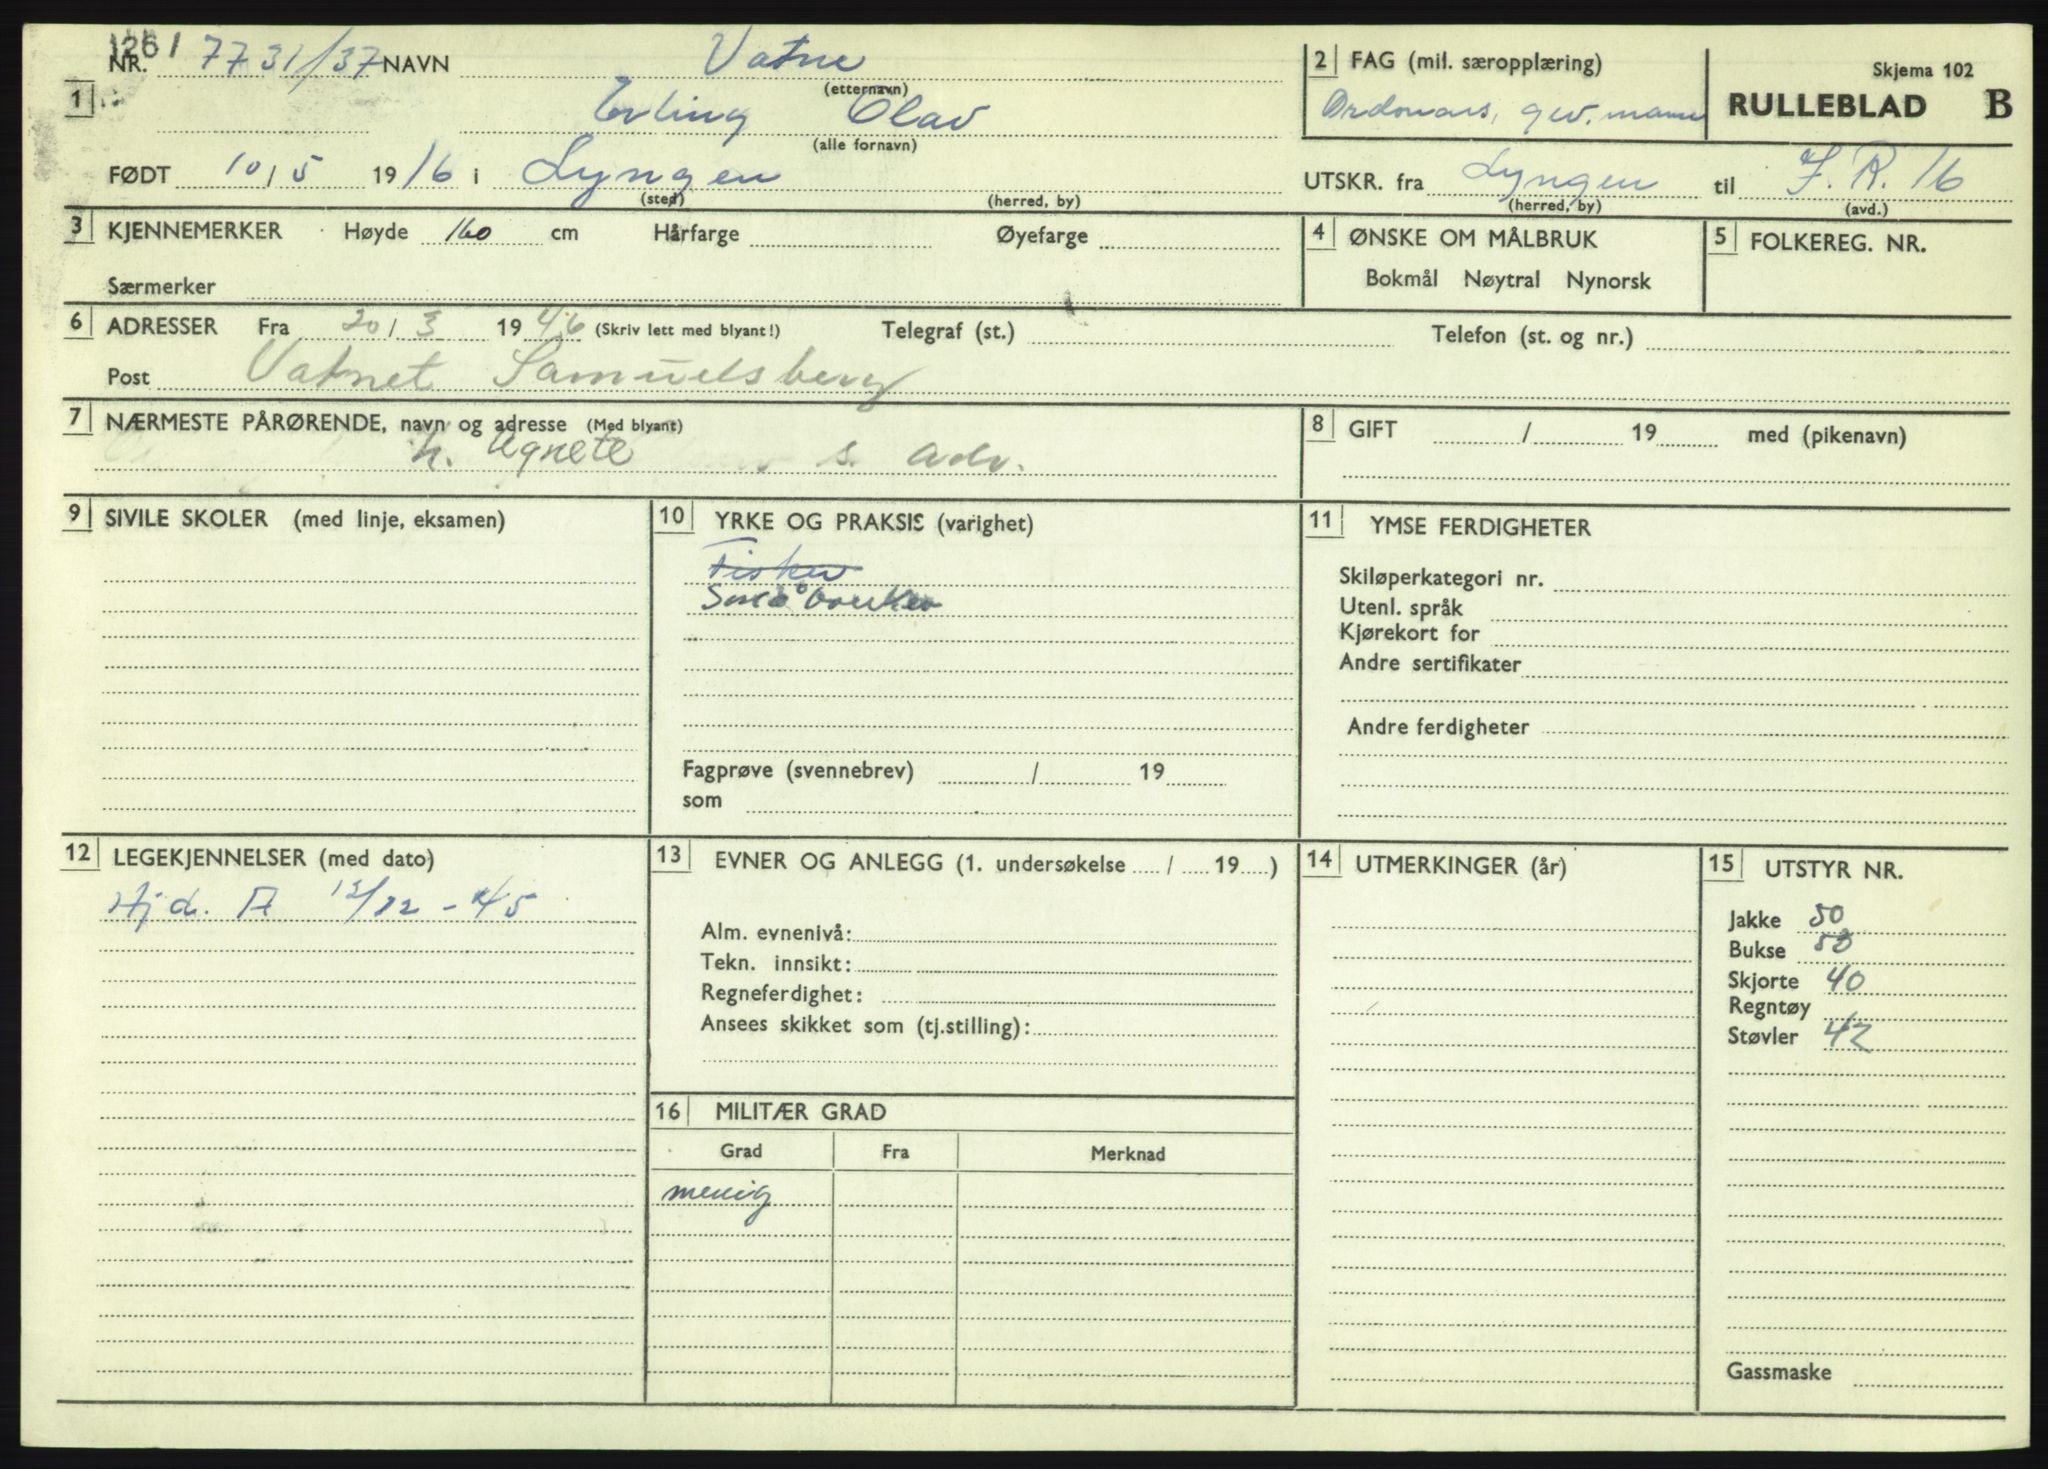 1261
NR. 7731/37 NAVN Vatne
(etternavn)
1 Erling Olav
(alle fornavn)
FØDT 10/5 1916 i Lyngen
(sted) (herred, by)
2 FAG (mil. særopplæring)
Ordonans, gev. mann
Skjema 102
RULLEBLAD B
UTSKR. fra Lyngen til I. R. 16
(herred, by) (avd.)
3 KJENNEMERKER Høyde 160 cm Hårfarge Øyefarge
Særmerker
4 ØNSKE OM MÅLBRUK
Bokmål Nøytral Nynorsk
5 FOLKEREG. NR.
6 ADRESSER Fra 20/3 1946 (Skriv lett med blyant!) Telegraf (st.) Telefon (st. og nr.)
Post Vatnet Samuelsberg
7 NÆRMESTE PÅRØRENDE, navn og adresse (Med blyant)
h. Agnete s. adr.
8 GIFT / 19 med (pikenavn)
9 SIVILE SKOLER (med linje, eksamen)
10 YRKE OG PRAKSIS (varighet)
Fisker
Småbruker
Fagprøve (svennebrev) / 19
som
11 YMSE FERDIGHETER
Skiløperkategori nr.
Utenl. språk
Kjørekort for
Andre sertifikater
Andre ferdigheter
12 LEGEKJENNELSER (med dato)
Hjd. A 12/12-45
13 EVNER OG ANLEGG (1. undersøkelse / 19 )
Alm. evnenivå:
Tekn. innsikt:
Regneferdighet:
Ansees skikket som (tj.stilling):
14 UTMERKINGER (år)
15 UTSTYR NR.
Jakke 50
Bukse 50
Skjorte 40
Regntøy
Støvler 42
Gassmaske
16 MILITÆR GRAD
Grad Fra Merknad
menig